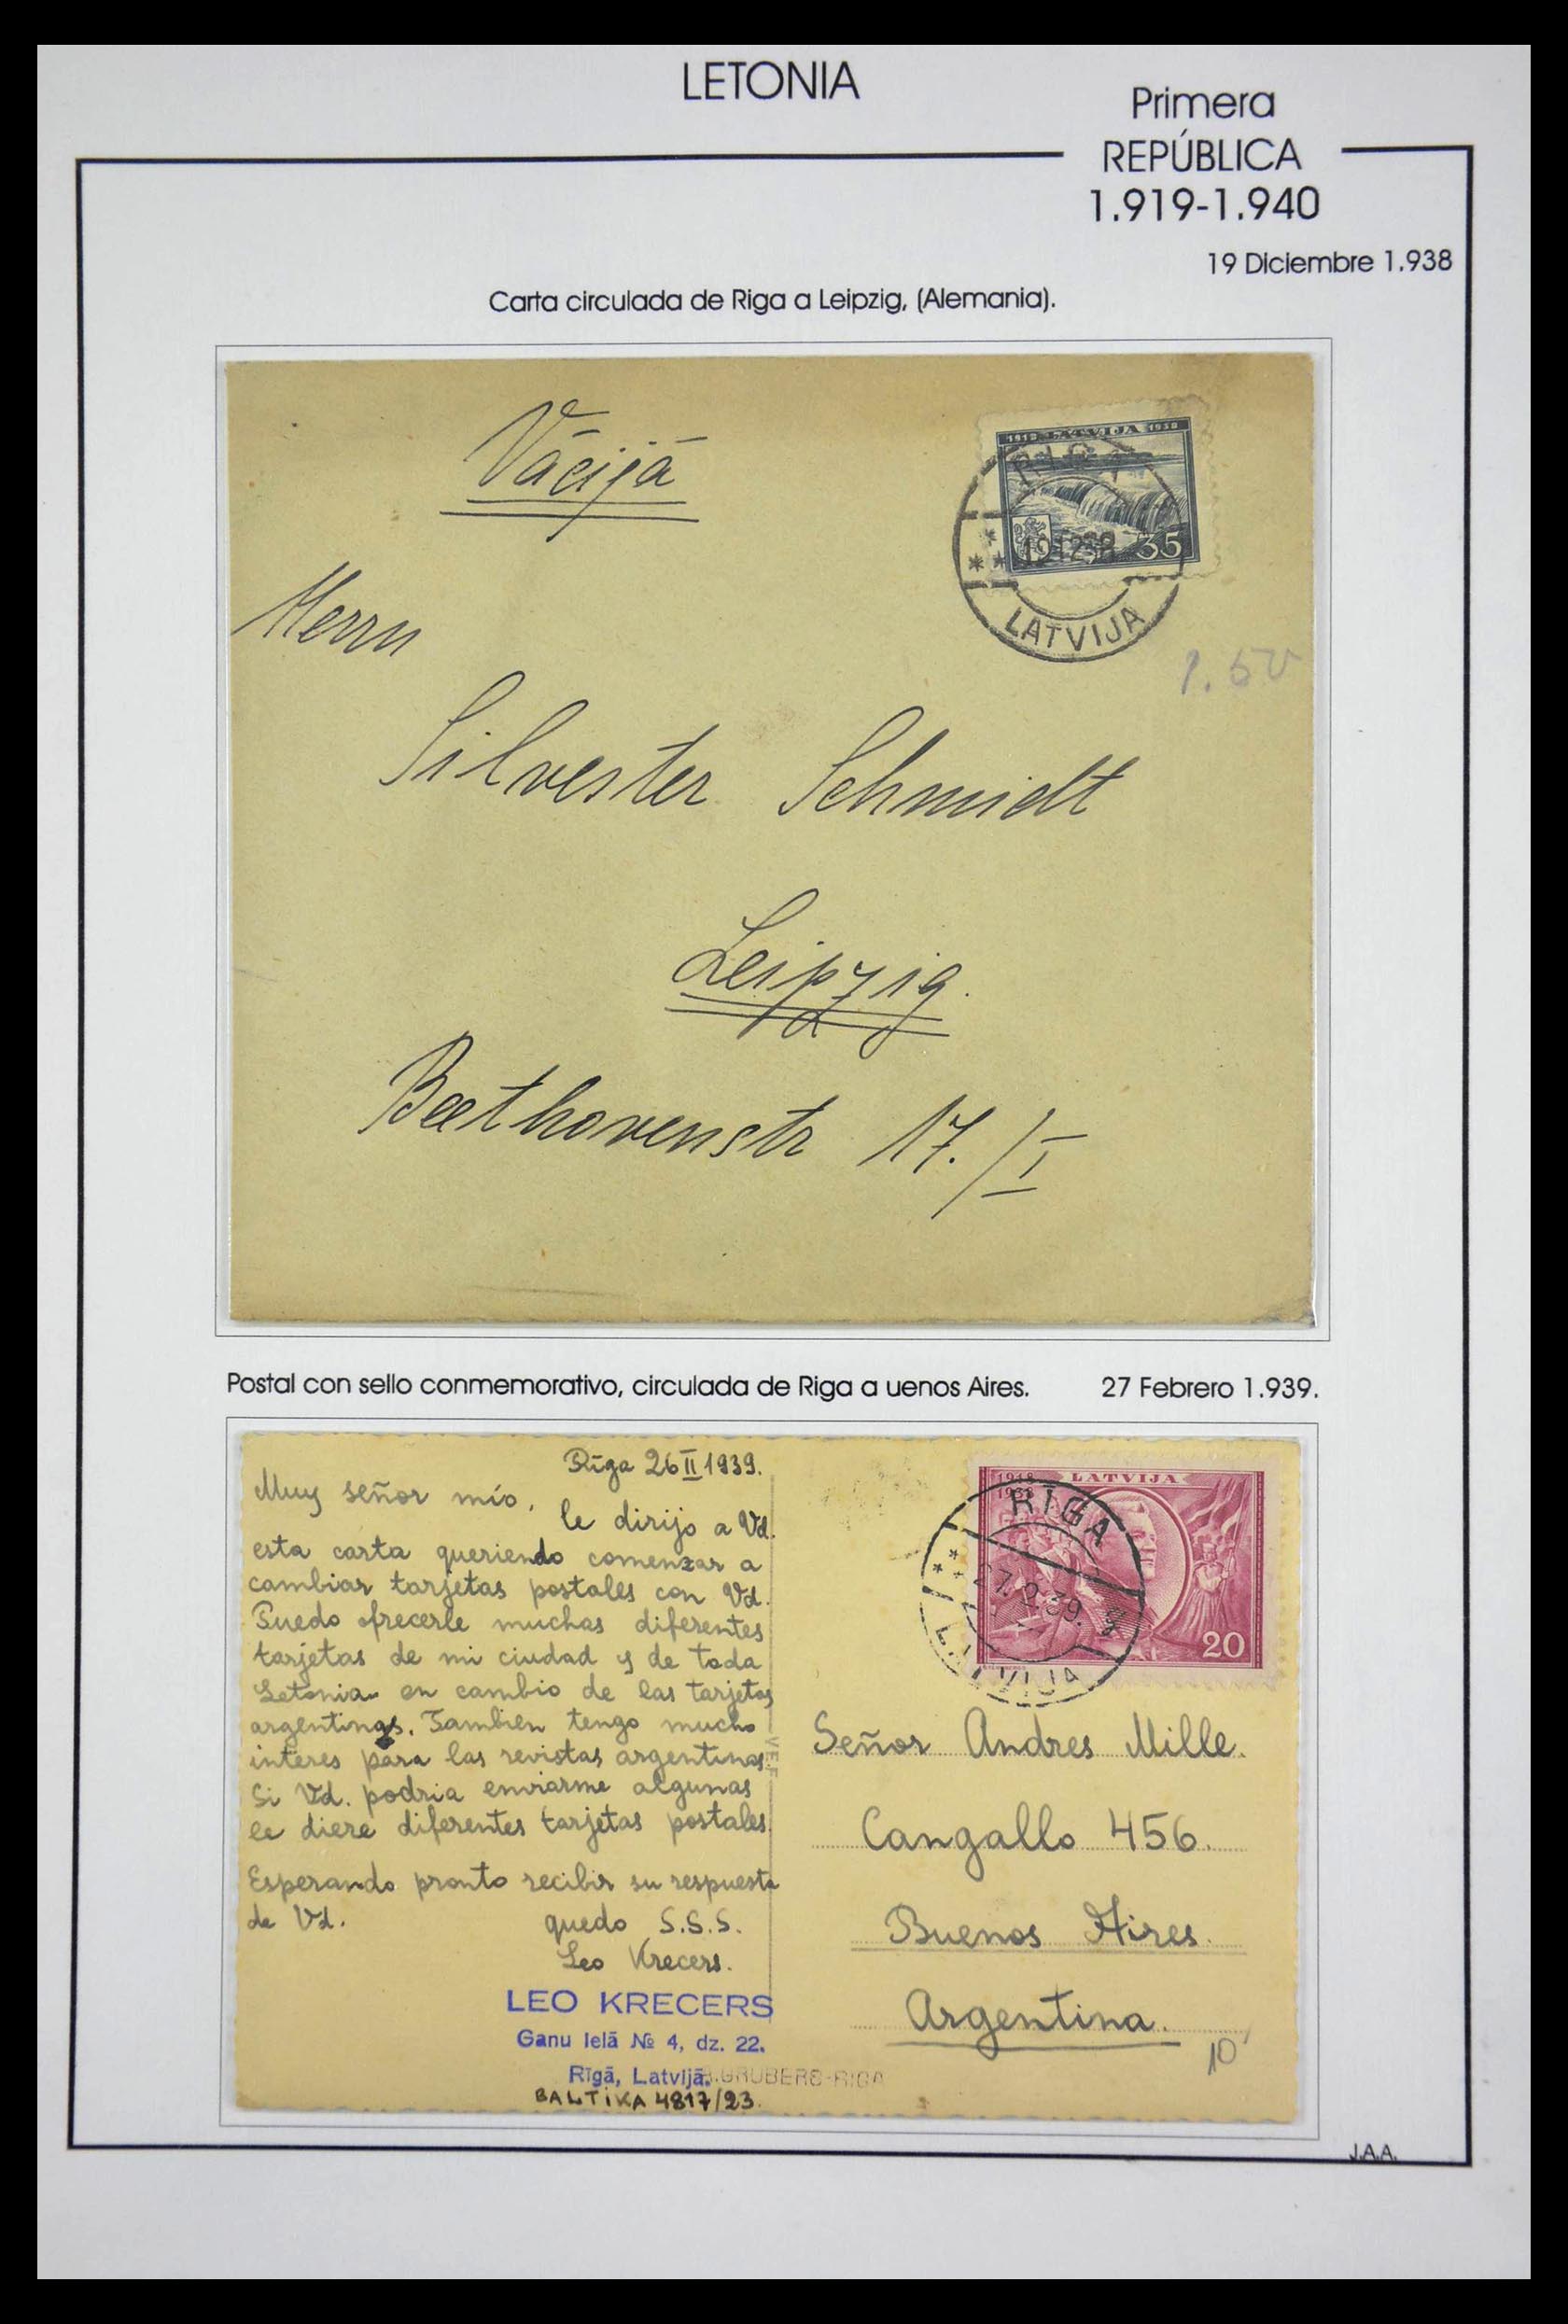 LETONIA
Primera
REPÚBLICA
1.919-1.940
19 Diciembre 1.938
Carta circulada de Riga a Leipzig, (Alemania).
Vācijā
1918 LATVIJA 1938
35
LATVIJA
Herrn
1.50
Silvester Schmidt
Leipzig.
Beethovenstr 17./I
Postal con sello conmemorativo, circulada de Riga a uenos Aires. 27 Febrero 1.939.
Rīga 26 II 1939.
Muy señor mío,
le dirijo a Vd.
esta carta queriendo comenzar a
cambiar tarjetas postales con Vd.
Puedo ofrecerle muchas diferentes
tarjetas de mi ciudad y de toda
Letonia en cambio de las tarjetas
argentinas. Tambien tengo mucho
interes para las revistas argentinas.
Si Vd. podria enviarme algunas
le diere diferentes tarjetas postales.
Esperando pronto recibir su respuesta
de Vd.
quedo S.S.S.
Leo Krecers.
LEO KRECERS
Ganu ielā № 4, dz. 22.
Rīgā, Latvijā.
BALTIKA 4817/23.
1918 LATVIJA
1938
RĪGA
27.2.39.
20
Señor Andres Mille.
Cangallo 456.
Buenos Aires.
Argentina.
10
J.A.A.